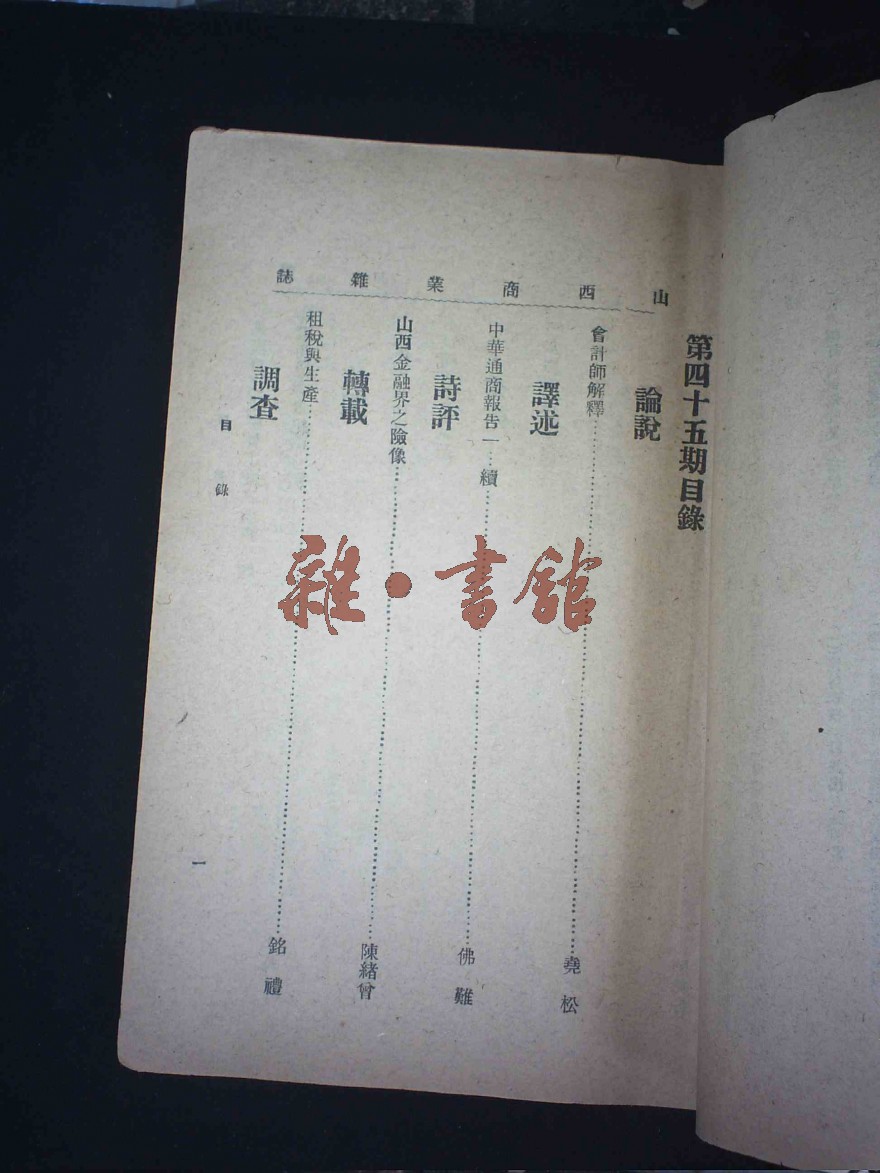 山西商業雜誌
第四十五期目錄
論說
會計師解釋……堯松
譯述
中華通商報告一…續……佛難
詩評
山西金融界之險像……陳緒曾
轉載
租稅與生產……銘禮
調查
目錄
一
雜·書館